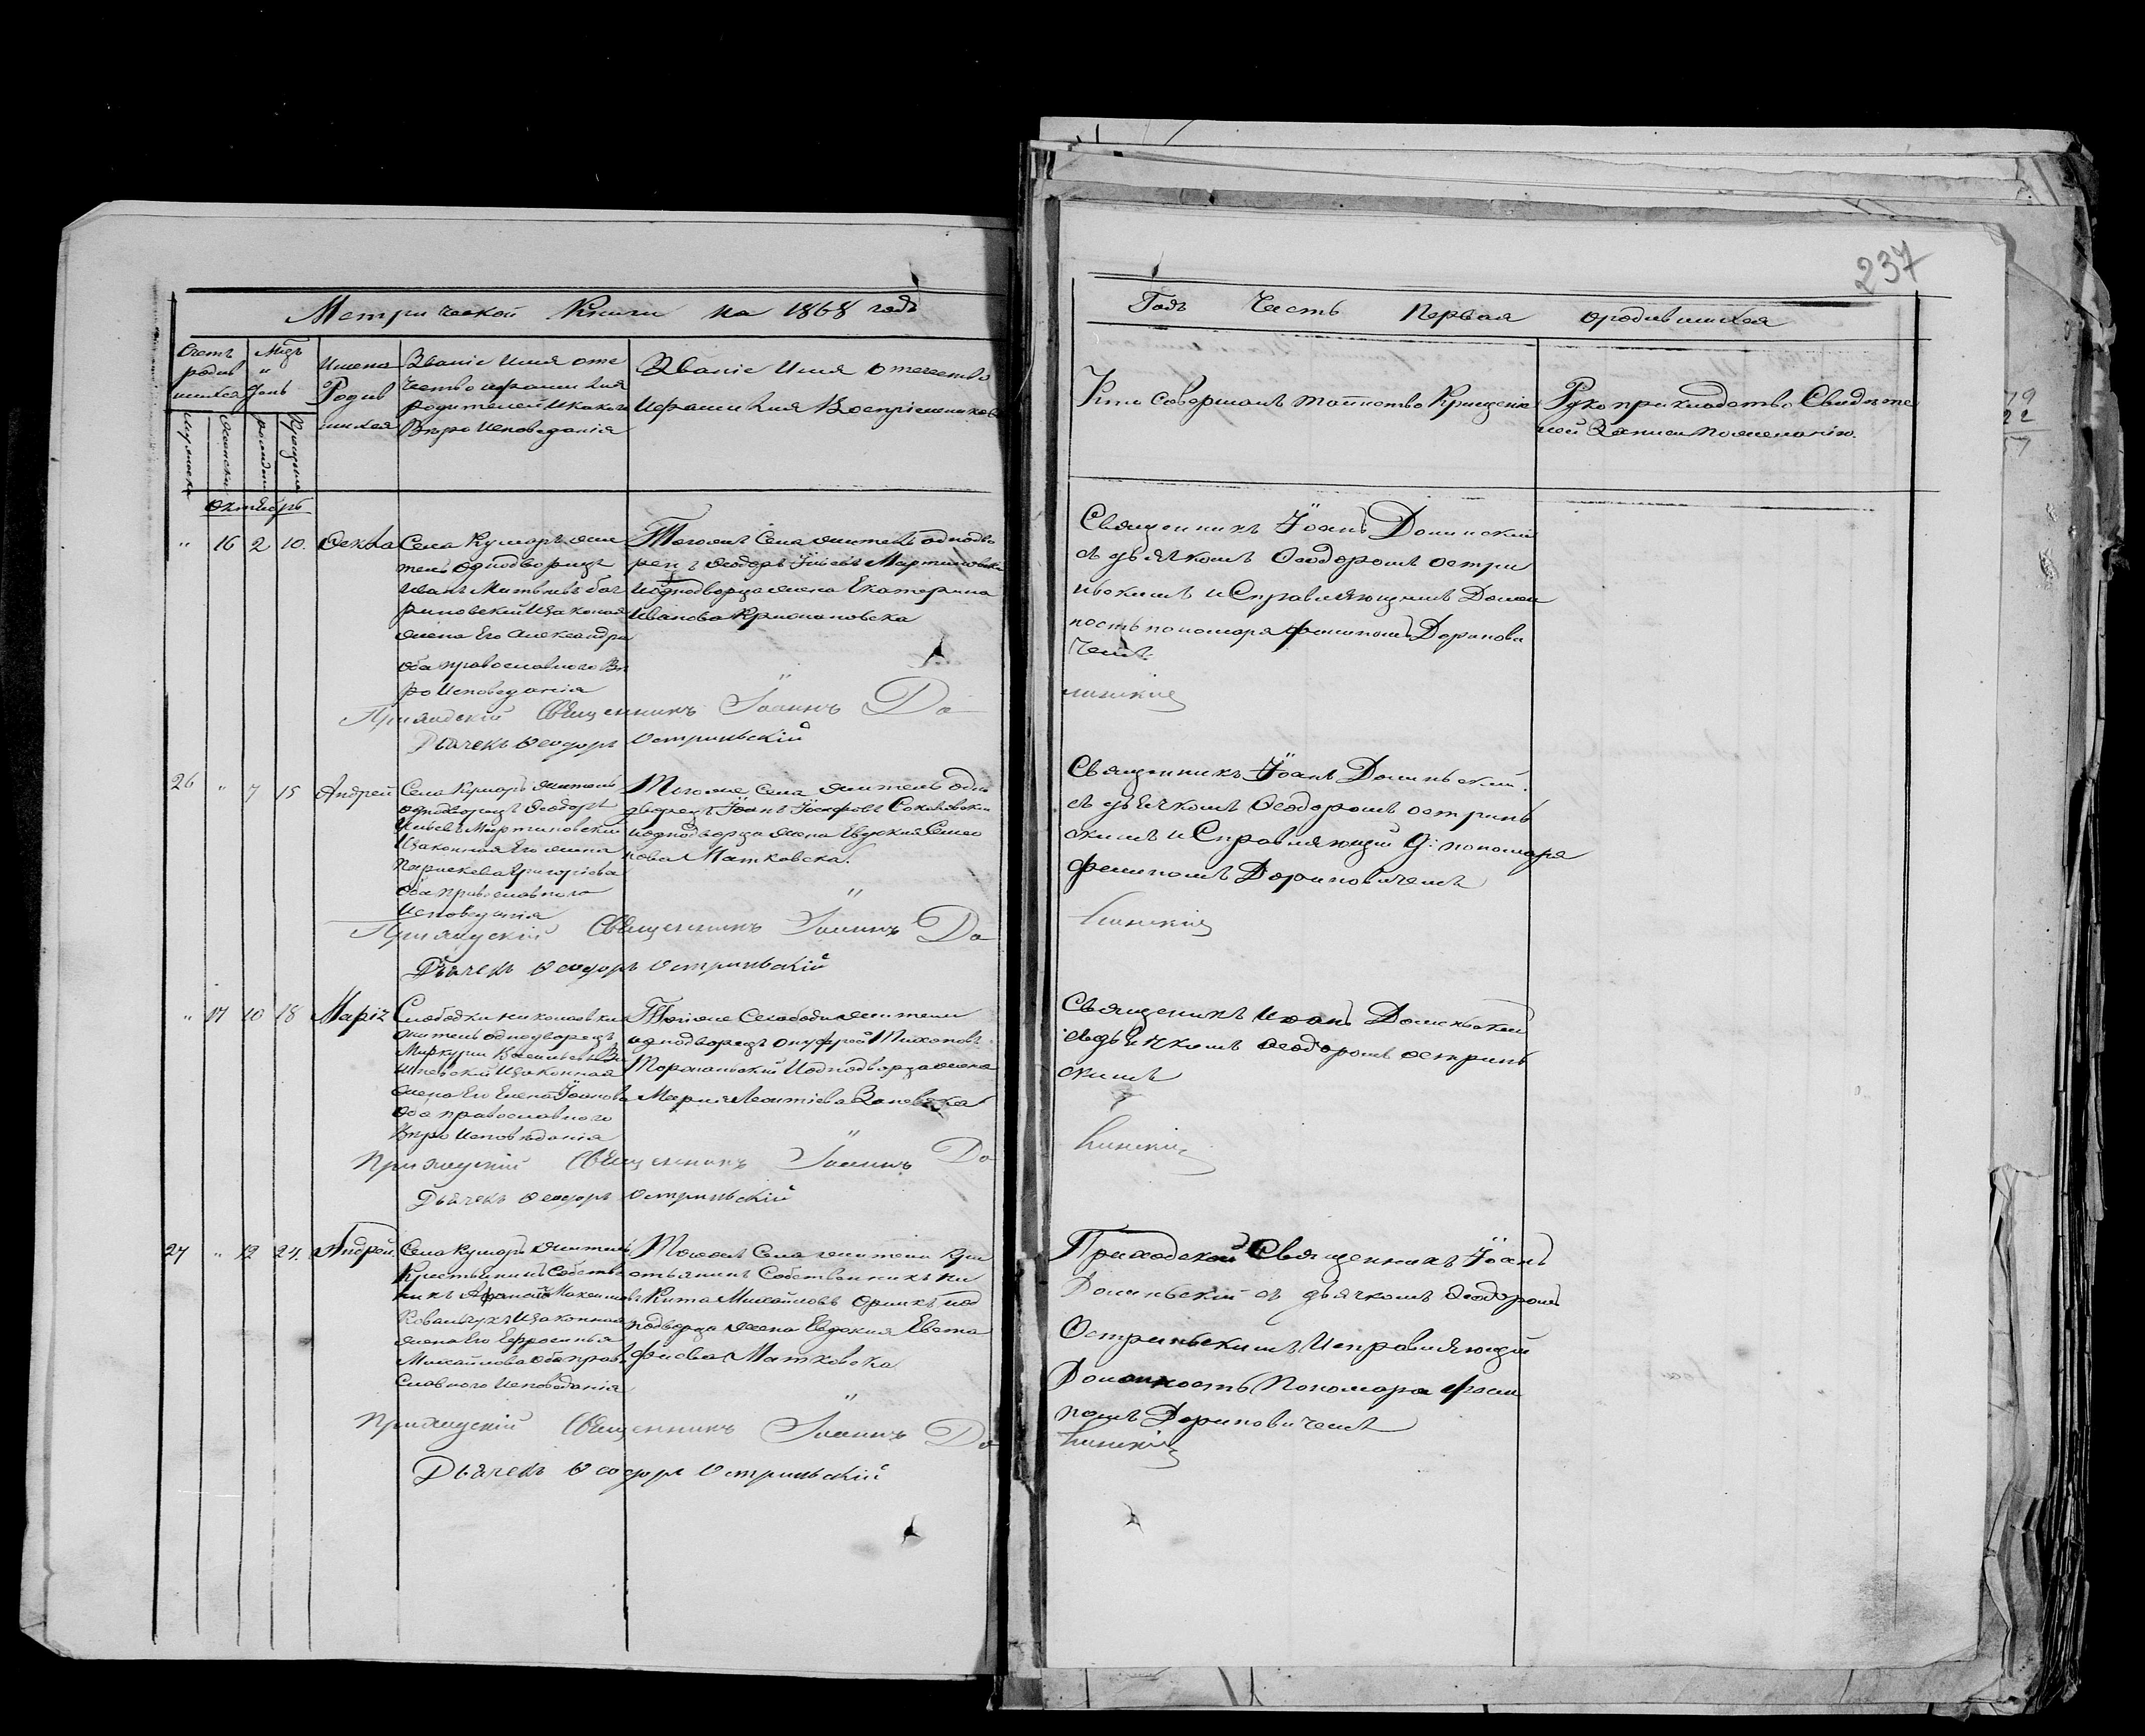 237
Метрической Книги на 1868 годъ
Годъ Часть Первая о родившихся
Счетъ родив шихся
Мѣц. " день
Имена Родив шихся
Званіе Имя оте
чество и фамилія
родителей и какого
Вѣроисповеданія
Званіе Имя отечество
и фамилія Воспріемниковъ
Кто Совершалъ таинство Крищенія
Рукоприкладство Свидѣте
лей Записи по желанію.
Мужеска
Женска
рожденія
Крещенія
октябрь
" 16 2 10. Ѳекла
Села Кумаръ жи
тель однодворецъ
Иванъ
и законая
жена Его Александра
оба православного Вѣ
ро Исповеданія
Тогоже Села житель однодво
рецъ Ѳеодоръ Мартиновски
и однодворца жена Екатерина
Иванова
Священникъ Іоанъ Долинский
съ дьячкомъ Ѳеодоромъ остри
ньскимъ и Справляющимъ Долж
ность пономаря Филипомъ Доринови
чемъ.
Приходскій Священникъ Іоаннъ До
линскій
Дьячекъ Ѳеодоръ Остриньскій
26 " 7 15 Андрей
Села Кумаръ житель
однодворецъ Ѳеодоръ
Мартиновский
И законная Его жена
Параскева Григоріева
Оба православного
Исповеданія
Тогоже Села житель одно
дворецъ Іоанъ Іосифовъ Соколовский
и однодворца жена Евдокия Семео
нова Матковска.
Священникъ Іоанъ Долиньский.
съ дьячкомъ Ѳеодоромъ остринь
скимъ и Справляющий д: пономаря
Филипомъ Дориновичемъ
Приходскій Священникъ Іоаннъ До
линскій
Дьячекъ Ѳеодоръ Остриньскій
" 17 10 18 Марія
Слободки
житель однодворецъ
Меркурий Васильевъ
И законная
жена Его Елена Іоанова
Оба православного
Вѣро исповѣданія
Тогоже Слободи жители
однодворецъ онуфрей Тихоновъ
И однодворца жена
Мария Леонтіева
Священикъ Иоанъ Долиньский
съ дьячкомъ Ѳеодоромъ остринь
скимъ
Приходскій Священникъ Іоаннъ До
линскій
Дьячекъ Ѳеодоръ Остриньскій
27 " 12 24. Андрей
Села Кумаръ житель
Крестьянинъ Собстве
никъ Максимовъ
Ковальчукъ И законная
жена Его Ефросинья
Михайлова оба право
Славного Исповеданія
Тогожъ Села жители Кре
стьянинъ Собственникъ Ни
Кита Михайловъ и од
нодворца жена Евдокия Евста
фиева Матковска
Приходский Священникъ Іоанъ
Долиньский съ дьячкомъ Ѳеодоромъ
Остриньскимъ, Исправляющий
Должность Пономаря Фили
помъ Дориновичемъ
Приходскій Священникъ Іоаннъ До
линскій
Дьячекъ Ѳеодоръ Остриньскій